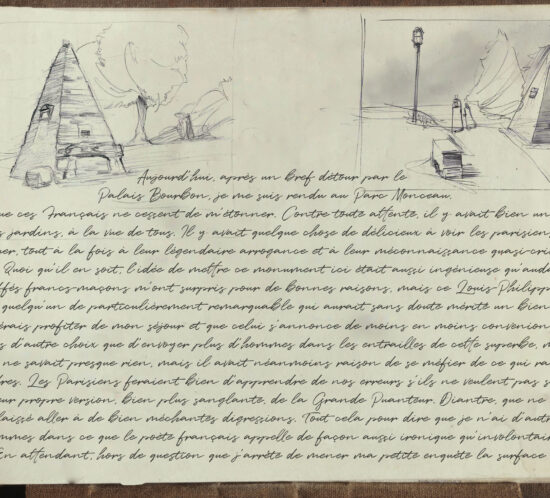 Aujourd'hui, après un bref détour par le
Palais Bourbon, je me suis rendu au Parc Monceau.
que ces Français ne cessent de m'étonner. Contre toute attente, il y avait bien un
s jardins, à la vue de tous. Il y avait quelque chose de délicieux à voir les parisien
er, tout à la fois à leur légendaire arrogance et à leur méconnaissance quasi-cri
Quoi qu'il en soit, l'idée de mettre ce monument ici était aussi ingénieuse qu'aud
ffés francs-maçons m'ont surpris pour de bonnes raisons, mais ce Louis-Philipp
quelqu'un de particulièrement remarquable qui aurait sans doute mérité un bien
érais profiter de mon séjour et que celui s'annonce de moins en moins convenion
s d'autre choix que d'envoyer plus d'hommes dans les entrailles de cette superbe, m
ne savait presque rien, mais il avait néanmoins raison de se méfier de ce qui ra
res. Les Parisiens feraient bien d'apprendre de nos erreurs s'ils ne veulent pas s
ur propre version, bien plus sanglante, de la Grande Puanteur. Diantre, que ne
laissé aller à de bien méchantes digressions. Tout cela pour dire que je n'ai d'autr
mmes dans ce que le poète français appelle de façon aussi ironique qu'involontai
En attendant, hors de question que j'arrête de mener ma petite enquête la surface